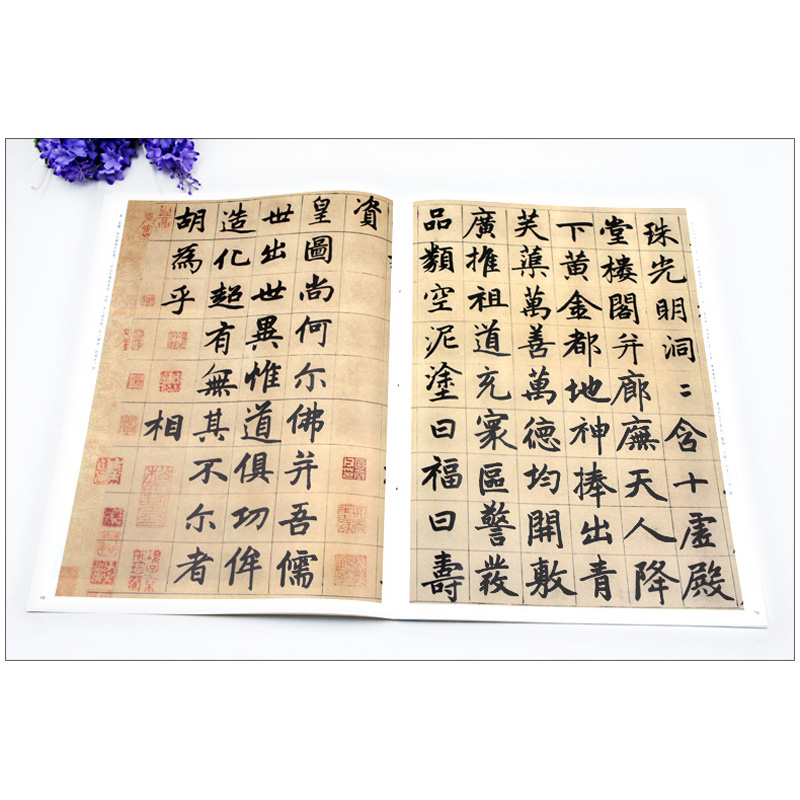 珠光明洞二含十虛殿
堂樓閣并廊廡天人降
下黄金都地神捧出青
芙蕖萬善萬德均開敷
廣推祖道充寰區警發
品類空泥塗曰福曰壽
資
皇圖尚何尔佛并吾儒
世出世異惟道俱功侔
造化超有無其不尔者
胡為乎
相